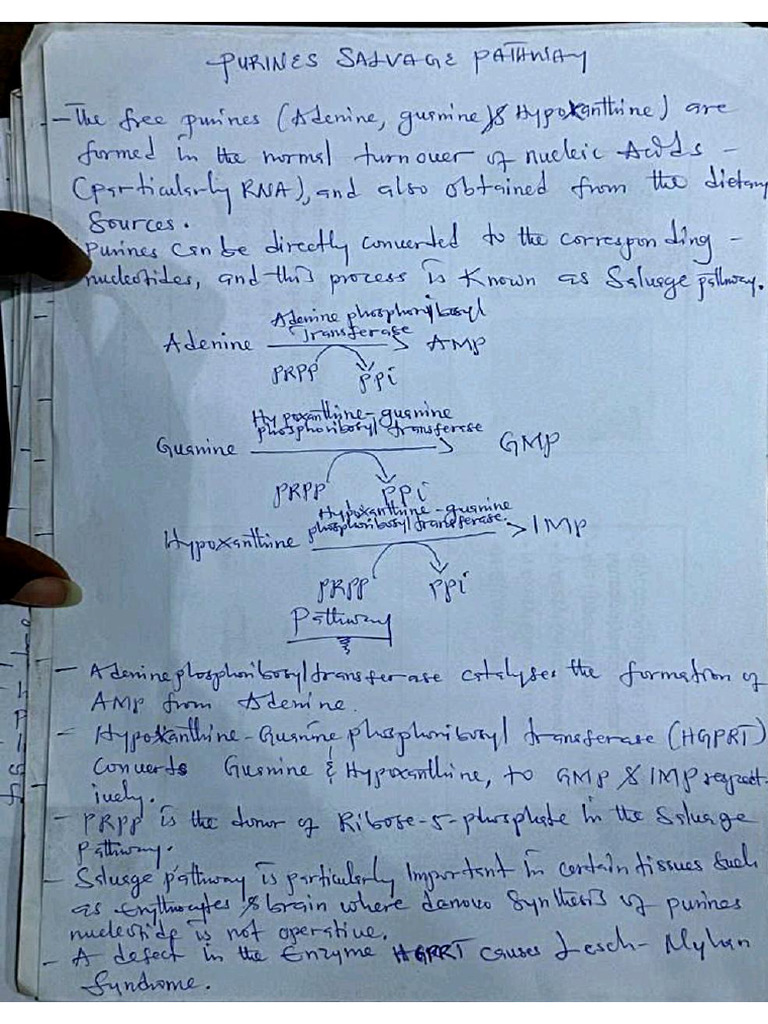 PURINES SALVAGE PATHWAY
- The free purines (Adenine, guanine, & Hypoxanthine) are
formed in the normal turnover of nucleic Acids -
(particularly RNA), and also obtained from the dietary
Sources.
Purines can be directly converted to the corresponding -
nucleotides, and this process is known as Salvage pathway.
Adenine phosphoribosyl
Transferase
Adenine → AMP
PRPP PPi
Hypoxanthine-guanine
phosphoribosyl transferase
Guanine → GMP
PRPP PPi
Hypoxanthine-guanine
phosphoribosyl transferase.
Hypoxanthine → IMP
PRPP PPi
Pathway
- Adenine phosphoribosyl transferase catalyses the formation of
AMP from Adenine.
- Hypoxanthine-Guanine phosphoribosyl transferase (HGPRT)
Converts Guanine & Hypoxanthine, to GMP & IMP respect-
ively.
- PRPP is the donor of Ribose-5-phosphate in the Salvage
pathway.
- Salvage pathway is particularly important in certain tissues such
as erythrocytes & brain where denovo synthesis of purines
nucleotide is not operative.
- A defect in the Enzyme HGPRT causes Lesch-Nyhan
Syndrome.